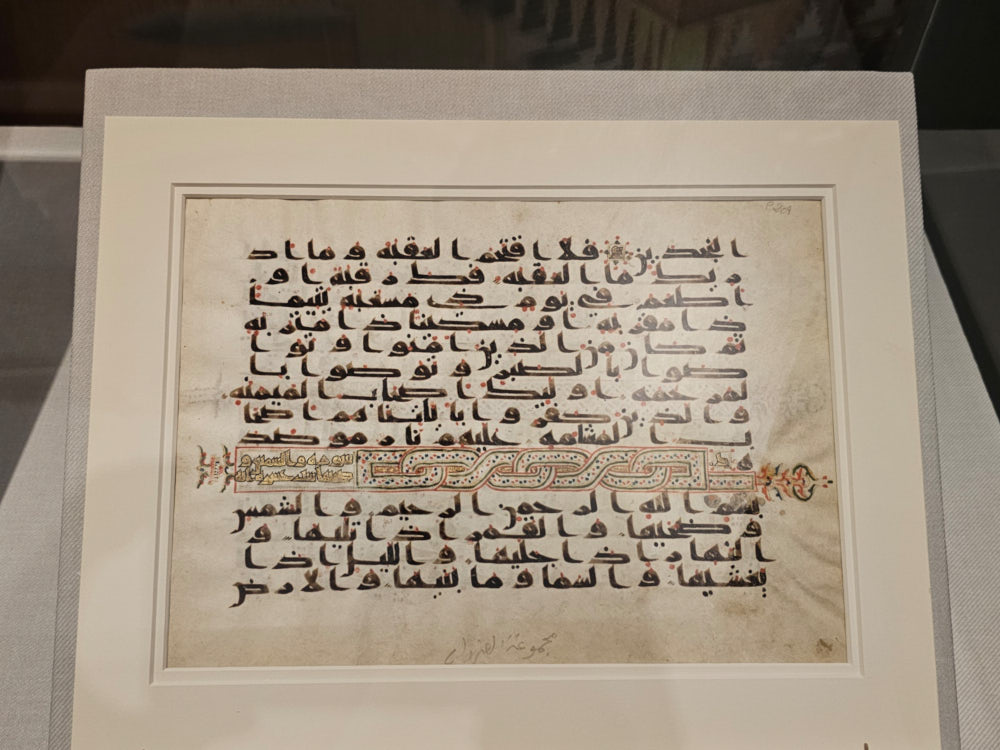 P.209
النجدين فلا اقتحم العقبة وما اد
ريك ما العقبة فك رقبة او
اطعم في يوم ذي مسغبة يتيما
ذا مقربة او مسكينا ذا متربة
ثم كان من الذين امنوا وتوا
صوا بالصبر وتوصوا با
لمرحمة اوليك اصحاب الميمنة
والذين كفروا باياتنا هم اصحا
ب المشامة عليهم نار موصد
ة
سورة والشمس و
بسم الله الرحمن الرحيم والشمس
وضحيها والقمر اذا تليها و
النهار اذا جليها واليل اذا
يغشيها والسما وما بنيها والارض
مجموعة